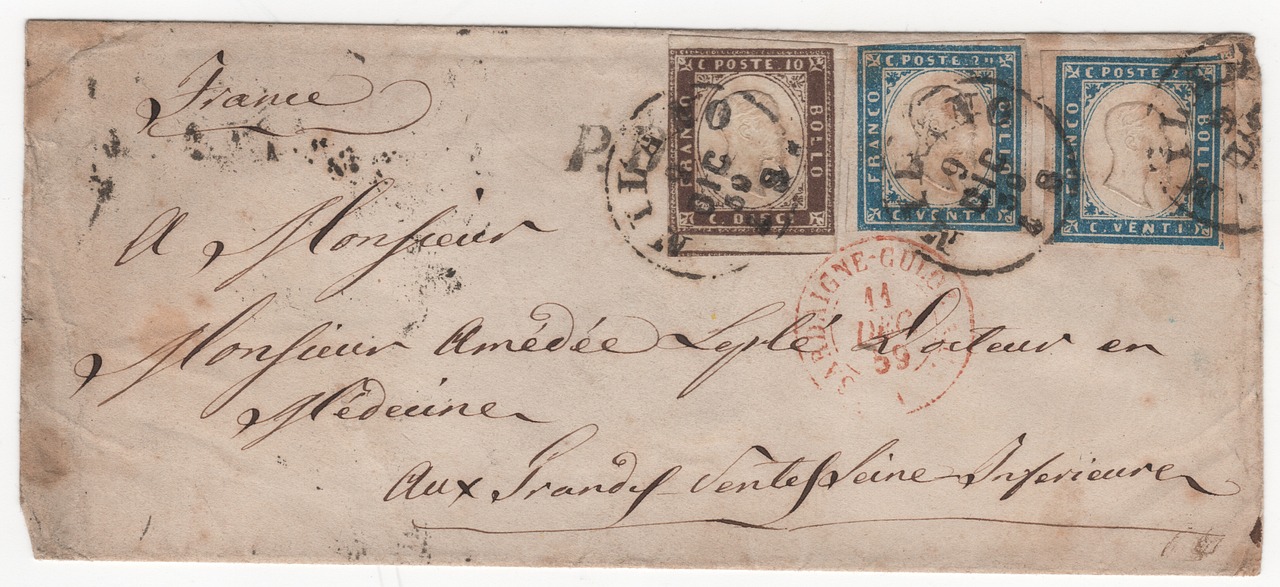 France
C. POSTE. 10
FRANCO
BOLLO
C. DIECI
C. POSTE. 20
FRANCO
BOLLO
C. VENTI
C. POSTE.
FRANCO
BOLLO
C. VENTI
MILANO
9
DIC
59
MILANO
9
DIC
59
8
A Monsieur
SARDAIGNE-CULOZ
11
DEC
59
Monsieur Amédée Docteur en
Médecine
Aux Grandes Ventes Seine Inferieure